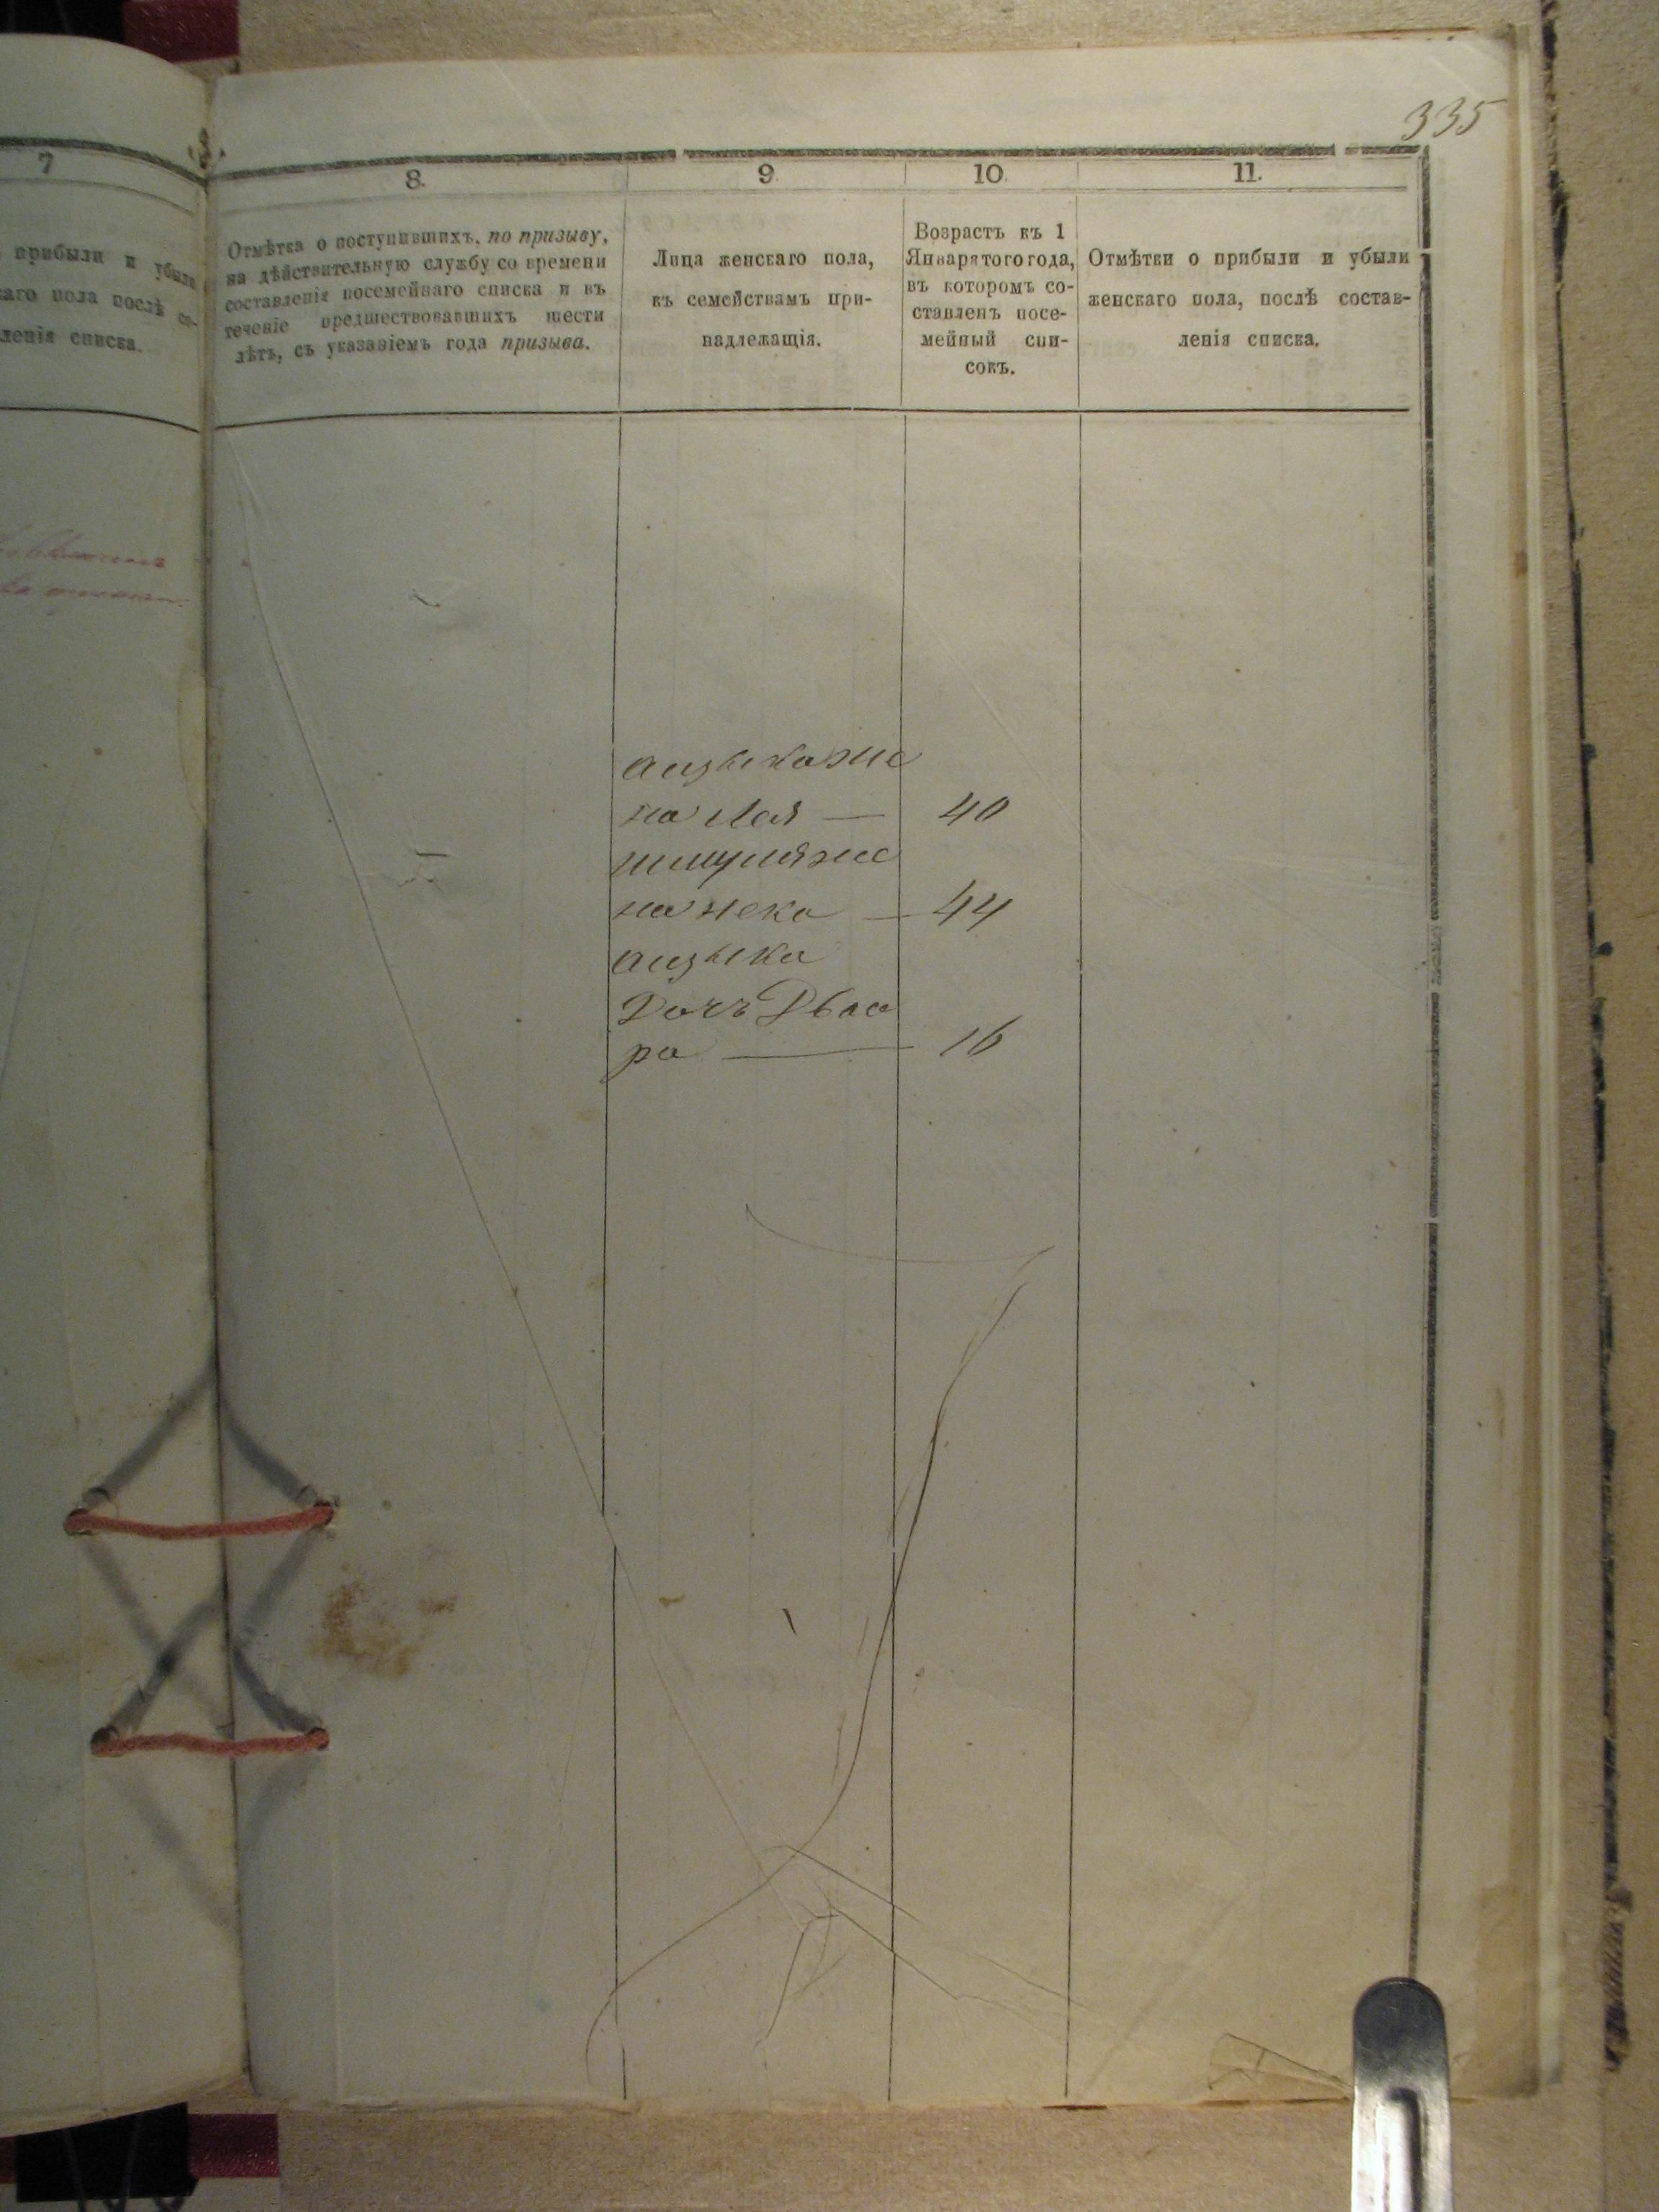 335
7
прибыли и убыли
каго пола послѣ со-
ленія списка.
8.
Отмѣтка о поступившихъ, по призыву,
на дѣйствительную службу со времени
составленія посемейнаго списка и въ
теченіе предшествовавшихъ шести
лѣтъ, съ указаніемъ года призыва.
9
Лица женскаго пола,
къ семействамъ при-
надлежащія.
10
Возрастъ къ 1
Января того года,
въ которомъ со-
ставленъ посе-
мейный спи-
сокъ.
11.
Отмѣтки о прибыли и убыли
женскаго пола, послѣ состав-
ленія списка.
айзыка же
на Лея — 40
же
на — 44
айзыка
Дочь Двао
ра — 16